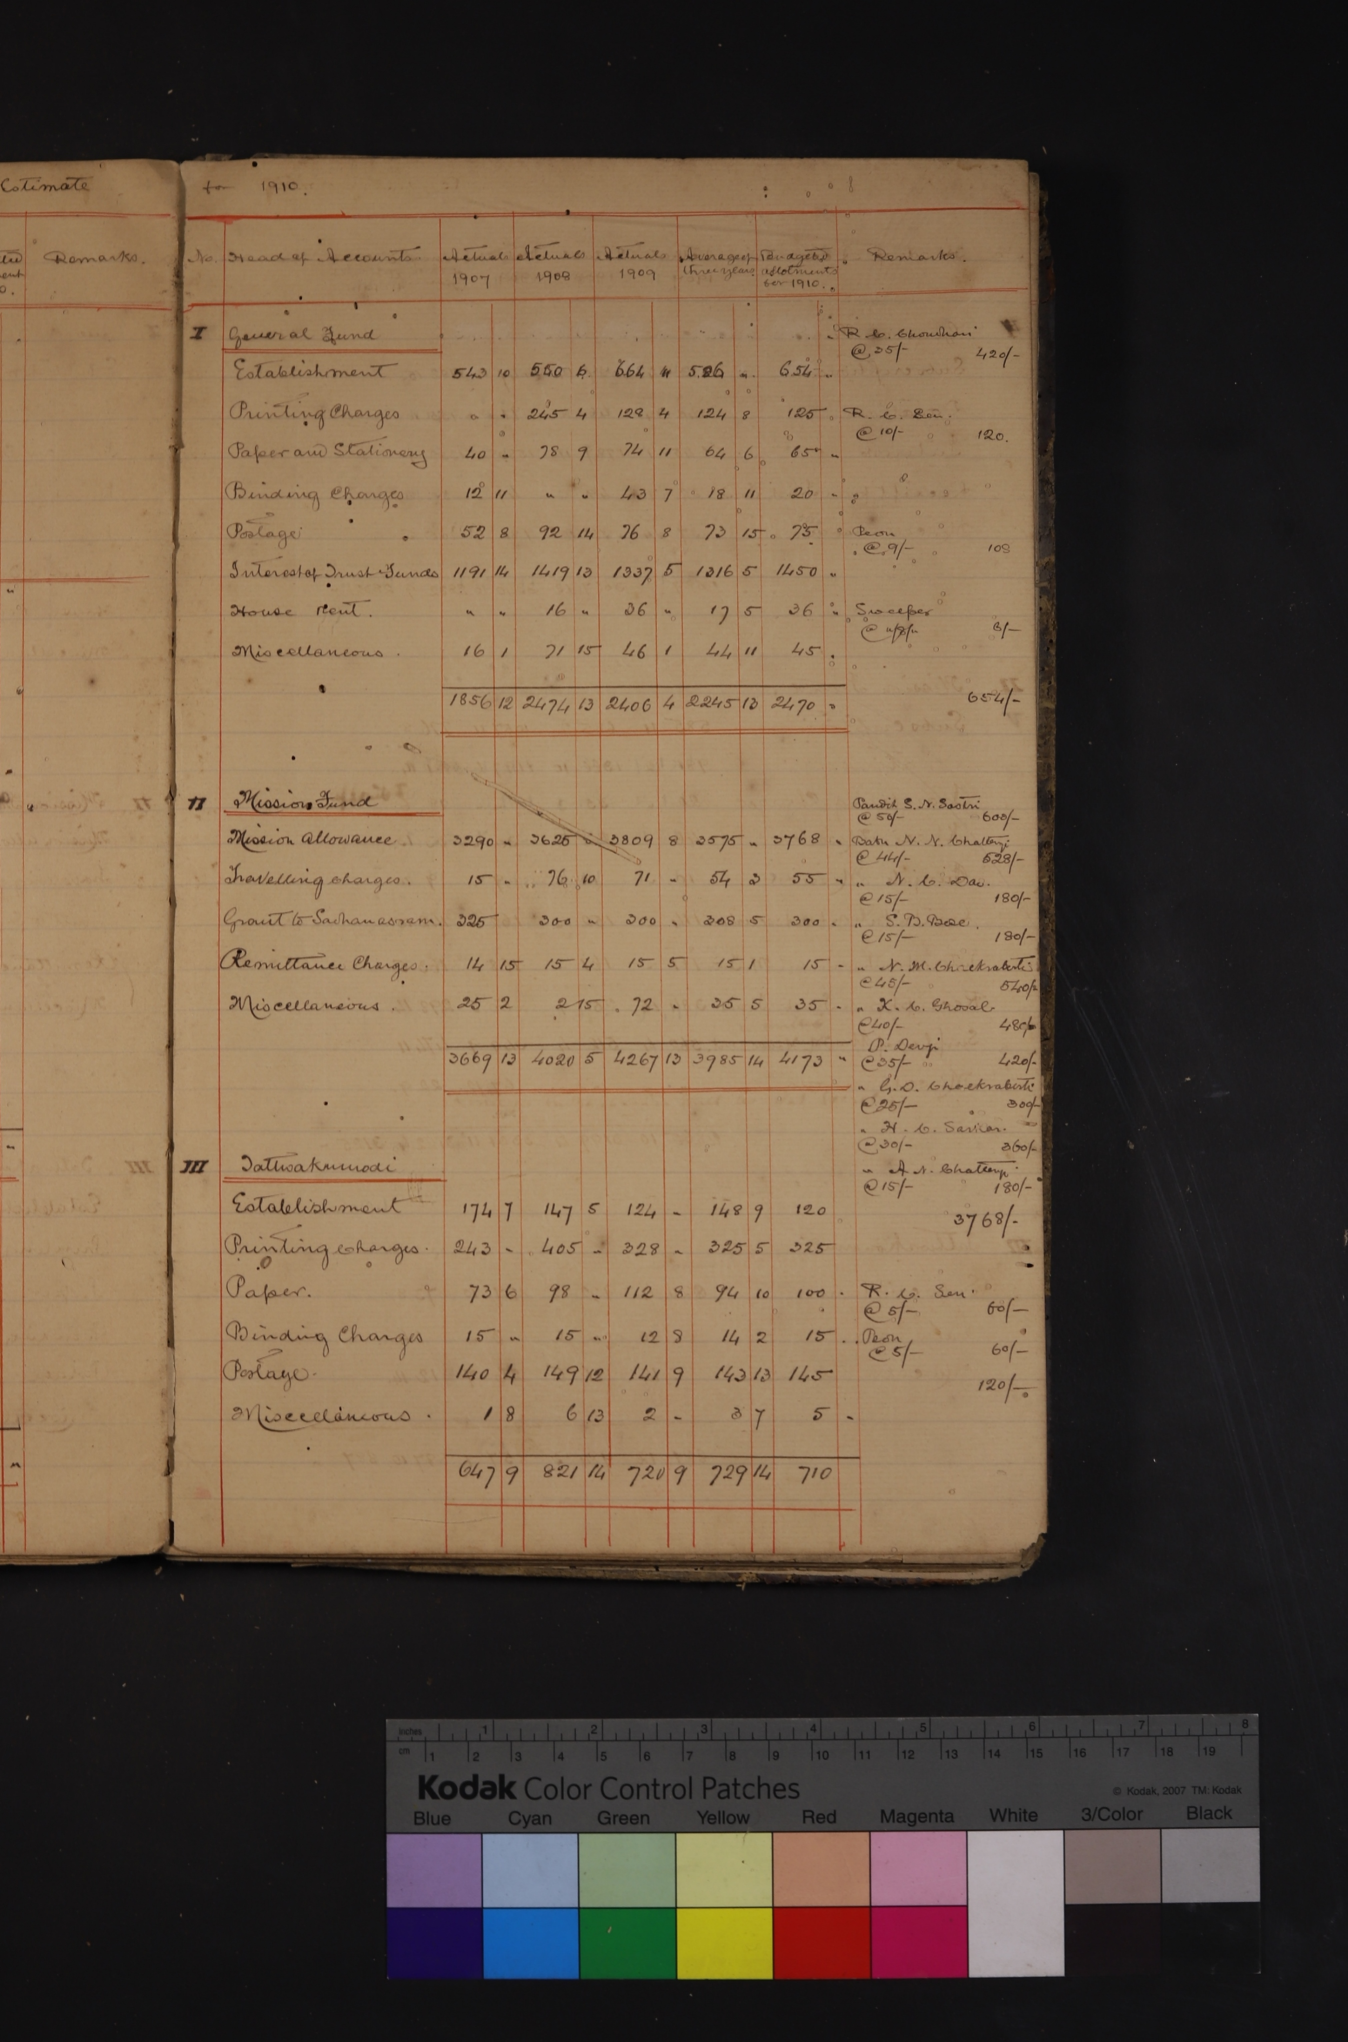 Estimate
Remarks.
for 1910.
No. Head of Accounts Actuals 1907 Actuals 1908 Actuals 1909 Average of three years Budgetted allotments for 1910. Remarks.
I General Fund R. C. Chowdhari
@ 35/- 420/-
Establishment 543 10 550 6 664 11 586 " 654 "
Printing Charges " " 245 4 128 4 124 8 125 " R. C. Sen.
@ 10/- 120.
Paper and Stationery 40 " 78 9 74 11 64 6 65 "
Binding Charges 12 11 " " 43 7 18 11 20 "
Postage 52 8 92 14 76 8 73 15 75 Peon
@ 9/- 108
Interest of Trust Funds 1191 14 1419 13 1337 5 1316 5 1450 "
House Rent. " " 16 " 36 " 17 5 36 " Sweeper
@ "/8/" 6/-
Miscellaneous. 16 1 71 15 46 1 44 11 45
1856 12 2474 13 2406 4 2245 13 2470 " 654/-
II Mission Fund Pandit S. N. Sastri
@ 50/- 600/-
Mission allowance 3290 " 3625 " 3809 8 3575 " 3768 " Babu N. N. Chatterji
@ 44/- 528/-
Travelling charges. 15 " 76 10 71 " 54 3 55 " " N. C. Das.
@ 15/- 180/-
Grant to Sadhanasram. 325 300 " 300 " 308 5 300 " " S. B. Bose.
@ 15/- 180/-
Remittance Charges. 14 15 15 4 15 5 15 1 15 - " N. M. Chuckraberti
@ 45/- 540/-
Miscellaneous. 25 2 2 15 72 - 35 5 35 - " K. C. Ghosal
@ 40/- 480/-
P. Devji
3669 13 4020 5 4267 13 3985 14 4173 " @ 35/- 420/-
" G. D. Chuckraberti
@ 25/- 300/-
" H. C. Sarkar.
@ 30/- 360/-
III Tattwakumodi " A. N. Chatterji
@ 15/- 180/-
Establishment 174 7 147 5 124 - 148 9 120
3768/-
Printing charges. 243 - 405 - 328 - 325 5 325
Paper. 73 6 98 - 112 8 94 10 100 . R. C. Sen.
@ 5/- 60/-
Binding Charges 15 " 15 " 12 8 14 2 15 . Peon
@ 5/- 60/-
Postage. 140 4 149 12 141 9 143 13 145
120/-
Miscellaneous. 1 8 6 13 2 - 3 7 5 -
647 9 821 14 720 9 729 14 710
inches 1 2 3 4 5 6 7 8
cm 1 2 3 4 5 6 7 8 9 10 11 12 13 14 15 16 17 18 19
Kodak Color Control Patches © Kodak, 2007 TM: Kodak
Blue Cyan Green Yellow Red Magenta White 3/Color Black